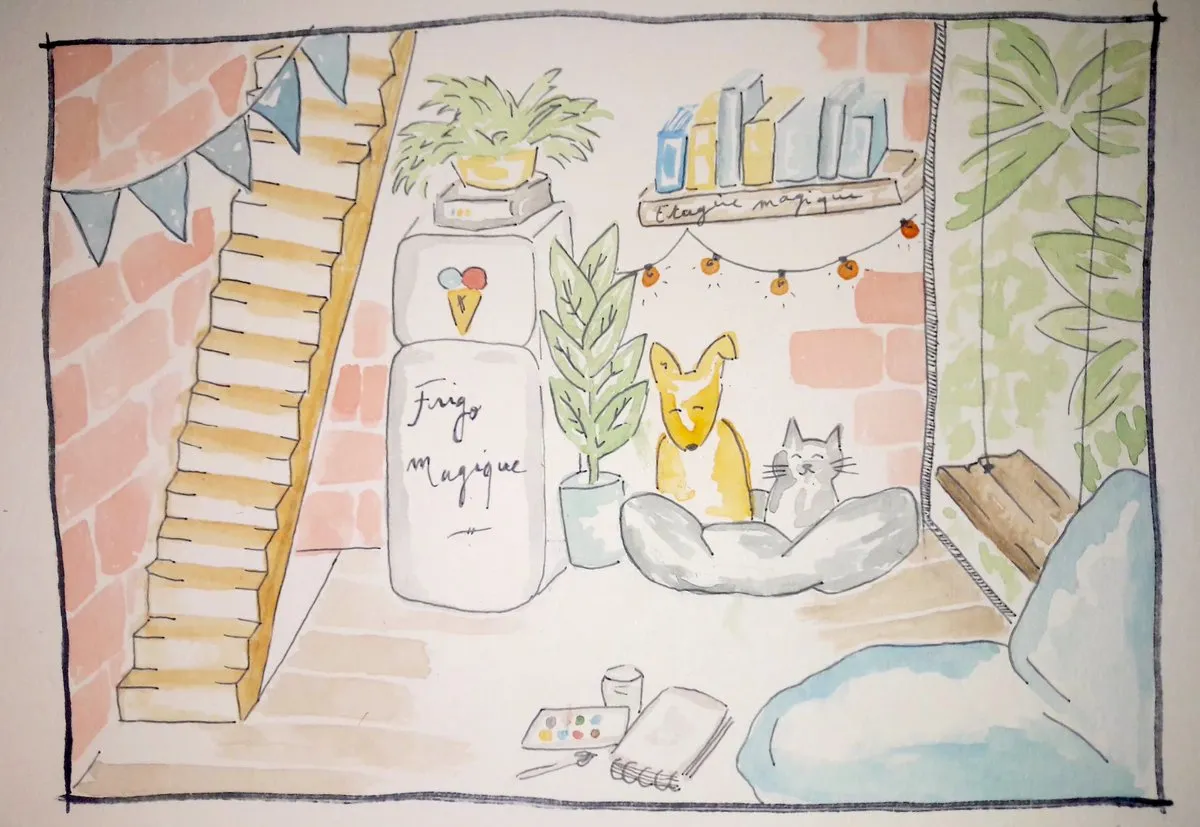 Etagère magique
Frigo
magique